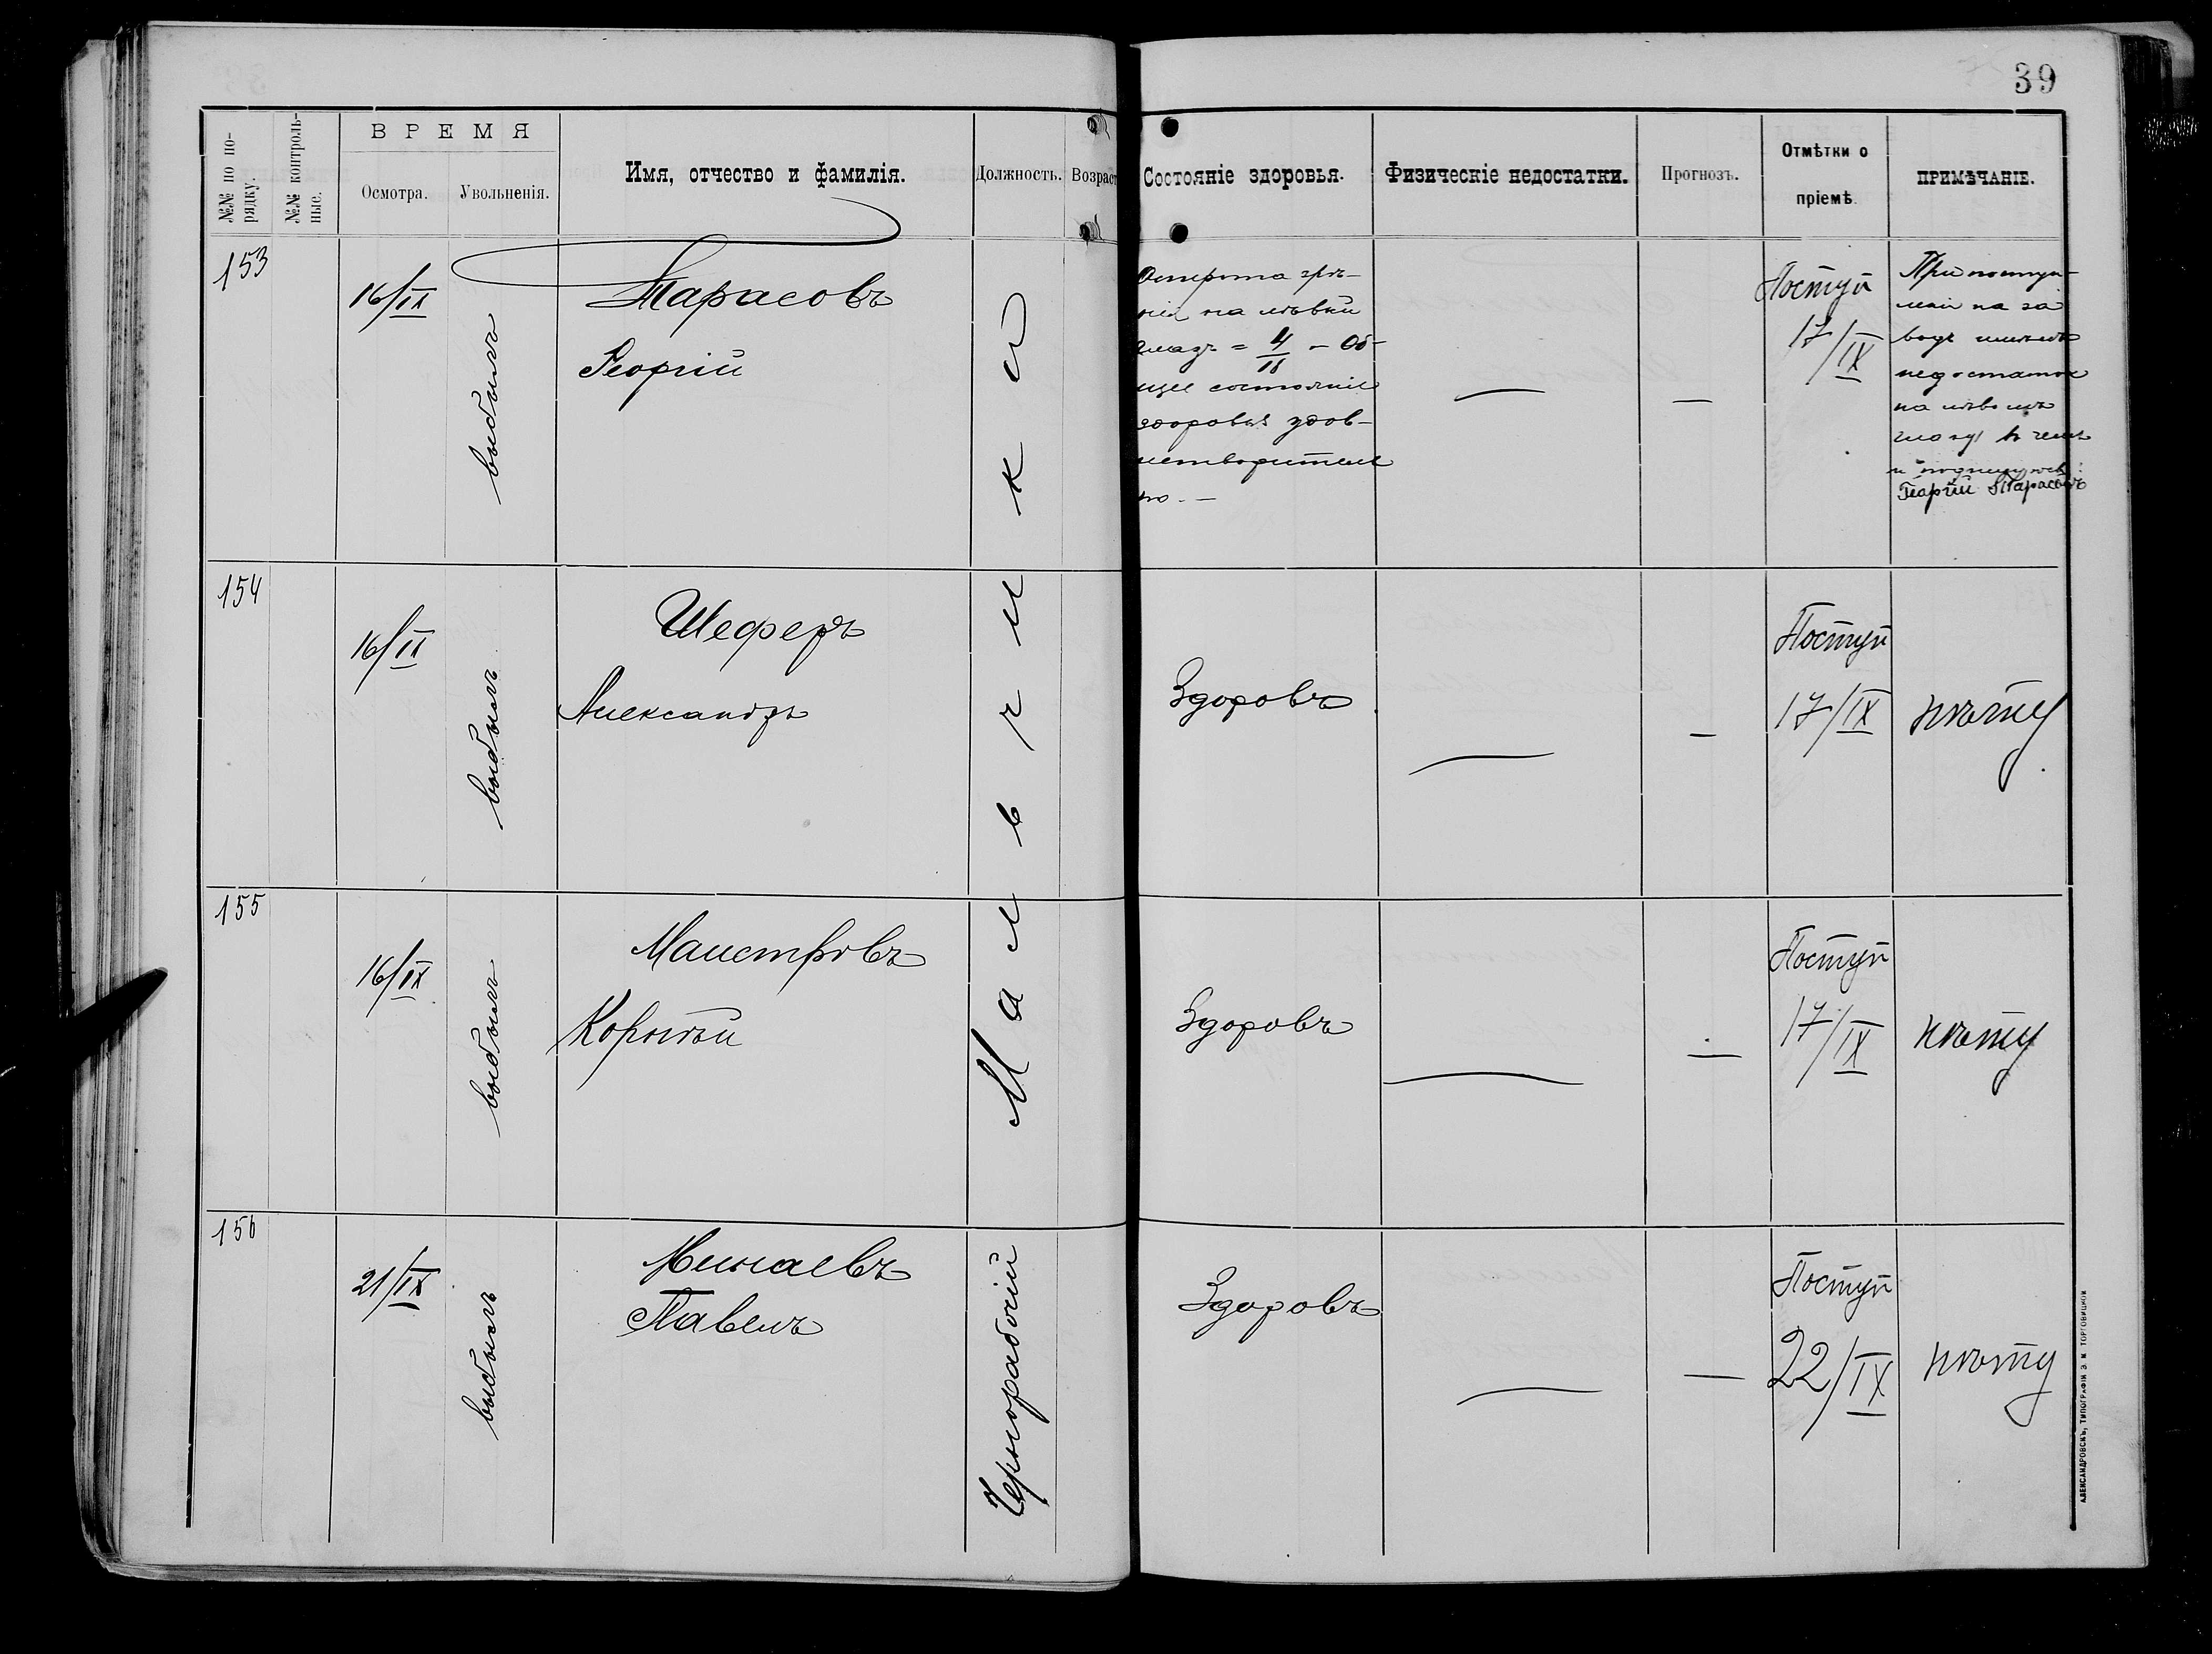 39
№№ по по-
рядку.
№№ контроль-
ные.
ВРЕМЯ
Осмотра.
Увольненія.
Имя, отчество и фамилія.
Должность.
Возраст
Состояніе здоровья.
Физическіе недостатки.
Прогнозъ.
Отмѣтки о
пріемѣ.
ПРИМѢЧАНІЕ.
153
16/IX
выбылъ
Тарасовъ
Георгій
Мальчики
Острота зрѣ-
нія на лѣвый
глазъ = 4/18 – Об-
щее состояніе
здоровья удов-
летворитель
но. –
—
—
Поступ
17/IX
При поступ-
леніи на за
водѣ имѣлъ
недостаток
на лѣвомъ
глазу въ чемъ
и подпишусь:
Георгій Тарасовъ
154
16/IX
выбылъ
Шеферъ
Александръ
Здоровъ
—
—
Поступ
17/IX
нѣту
155
16/IX
выбылъ
Маистровъ
Корнѣй
Здоровъ
—
—
Поступ
17/IX
нѣту
156
21/IX
выбылъ
Минаевъ
Павелъ
Чернорабочій
Здоровъ
—
—
Поступ
22/IX
нѣту
АЛЕКСАНДРОВСКЪ, ТИПОГРАФІЯ Э. М. ТОРГОВИЦКОЙ